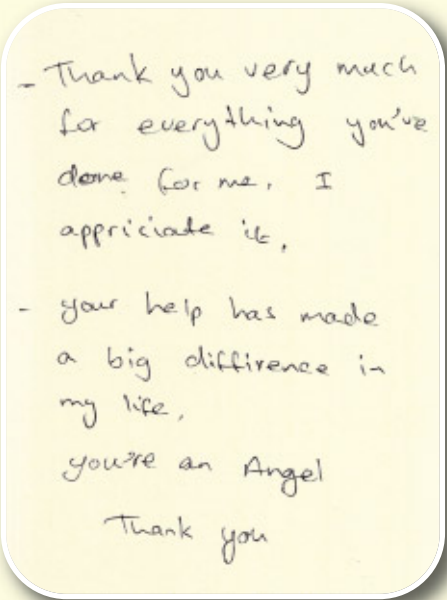 - Thank you very much
for everything you've
done for me. I
appriciate it.
- your help has made
a big diffirence in
my life,
you're an Angel
Thank you